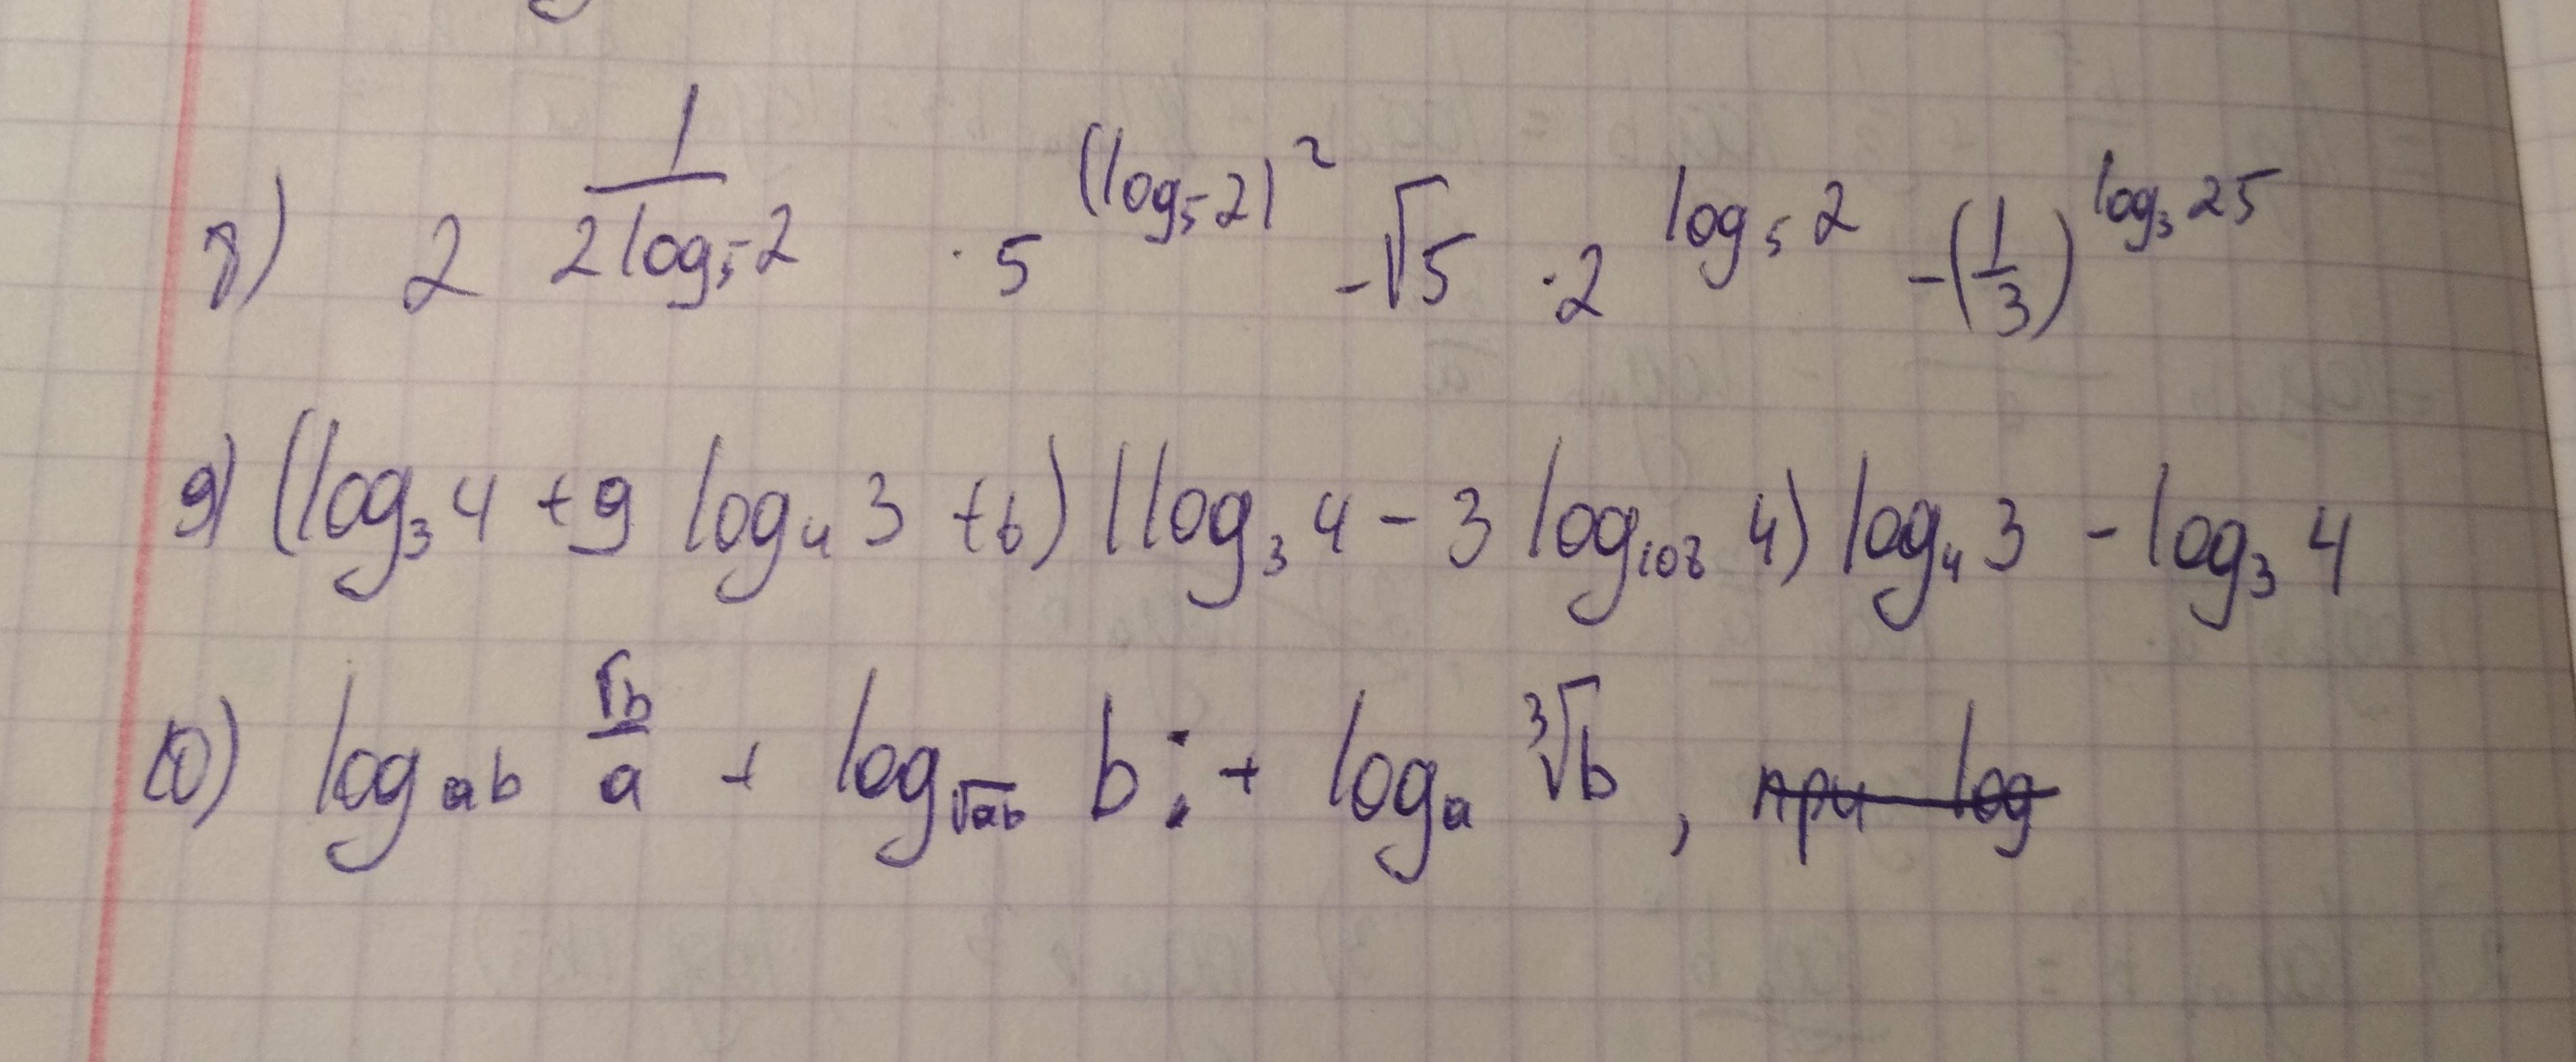 8) 2^{\frac{1}{2\log_5 2}} · 5^{(\log_5 2)^2} - √5 · 2^{\log_5 2} - (\frac{1}{3})^{\log_3 25}
9) (log₃ 4 + 9 log₄ 3 + 6) (log₃ 4 - 3 log₁₀₈ 4) log₄ 3 - log₃ 4
10) log_{ab} \frac{√b}{a} + log_{√ab} b : + log_a ∛b , при log